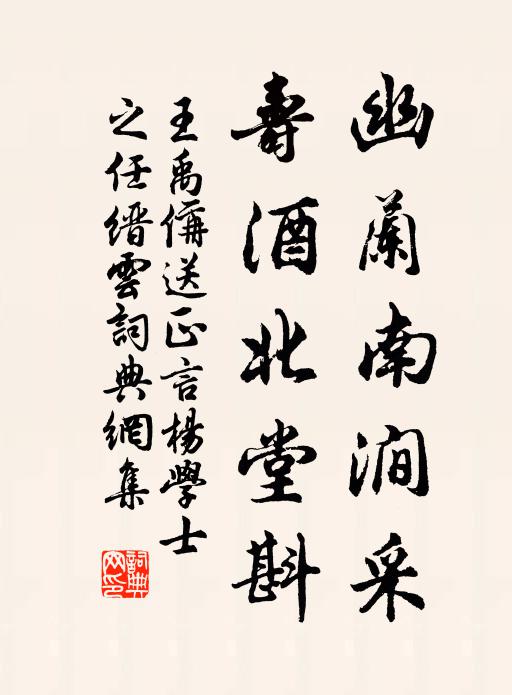 幽蘭南澗采
壽酒北堂斟
王禹偁送正言楊學士
之任縉雲詞典網集
詞典網印